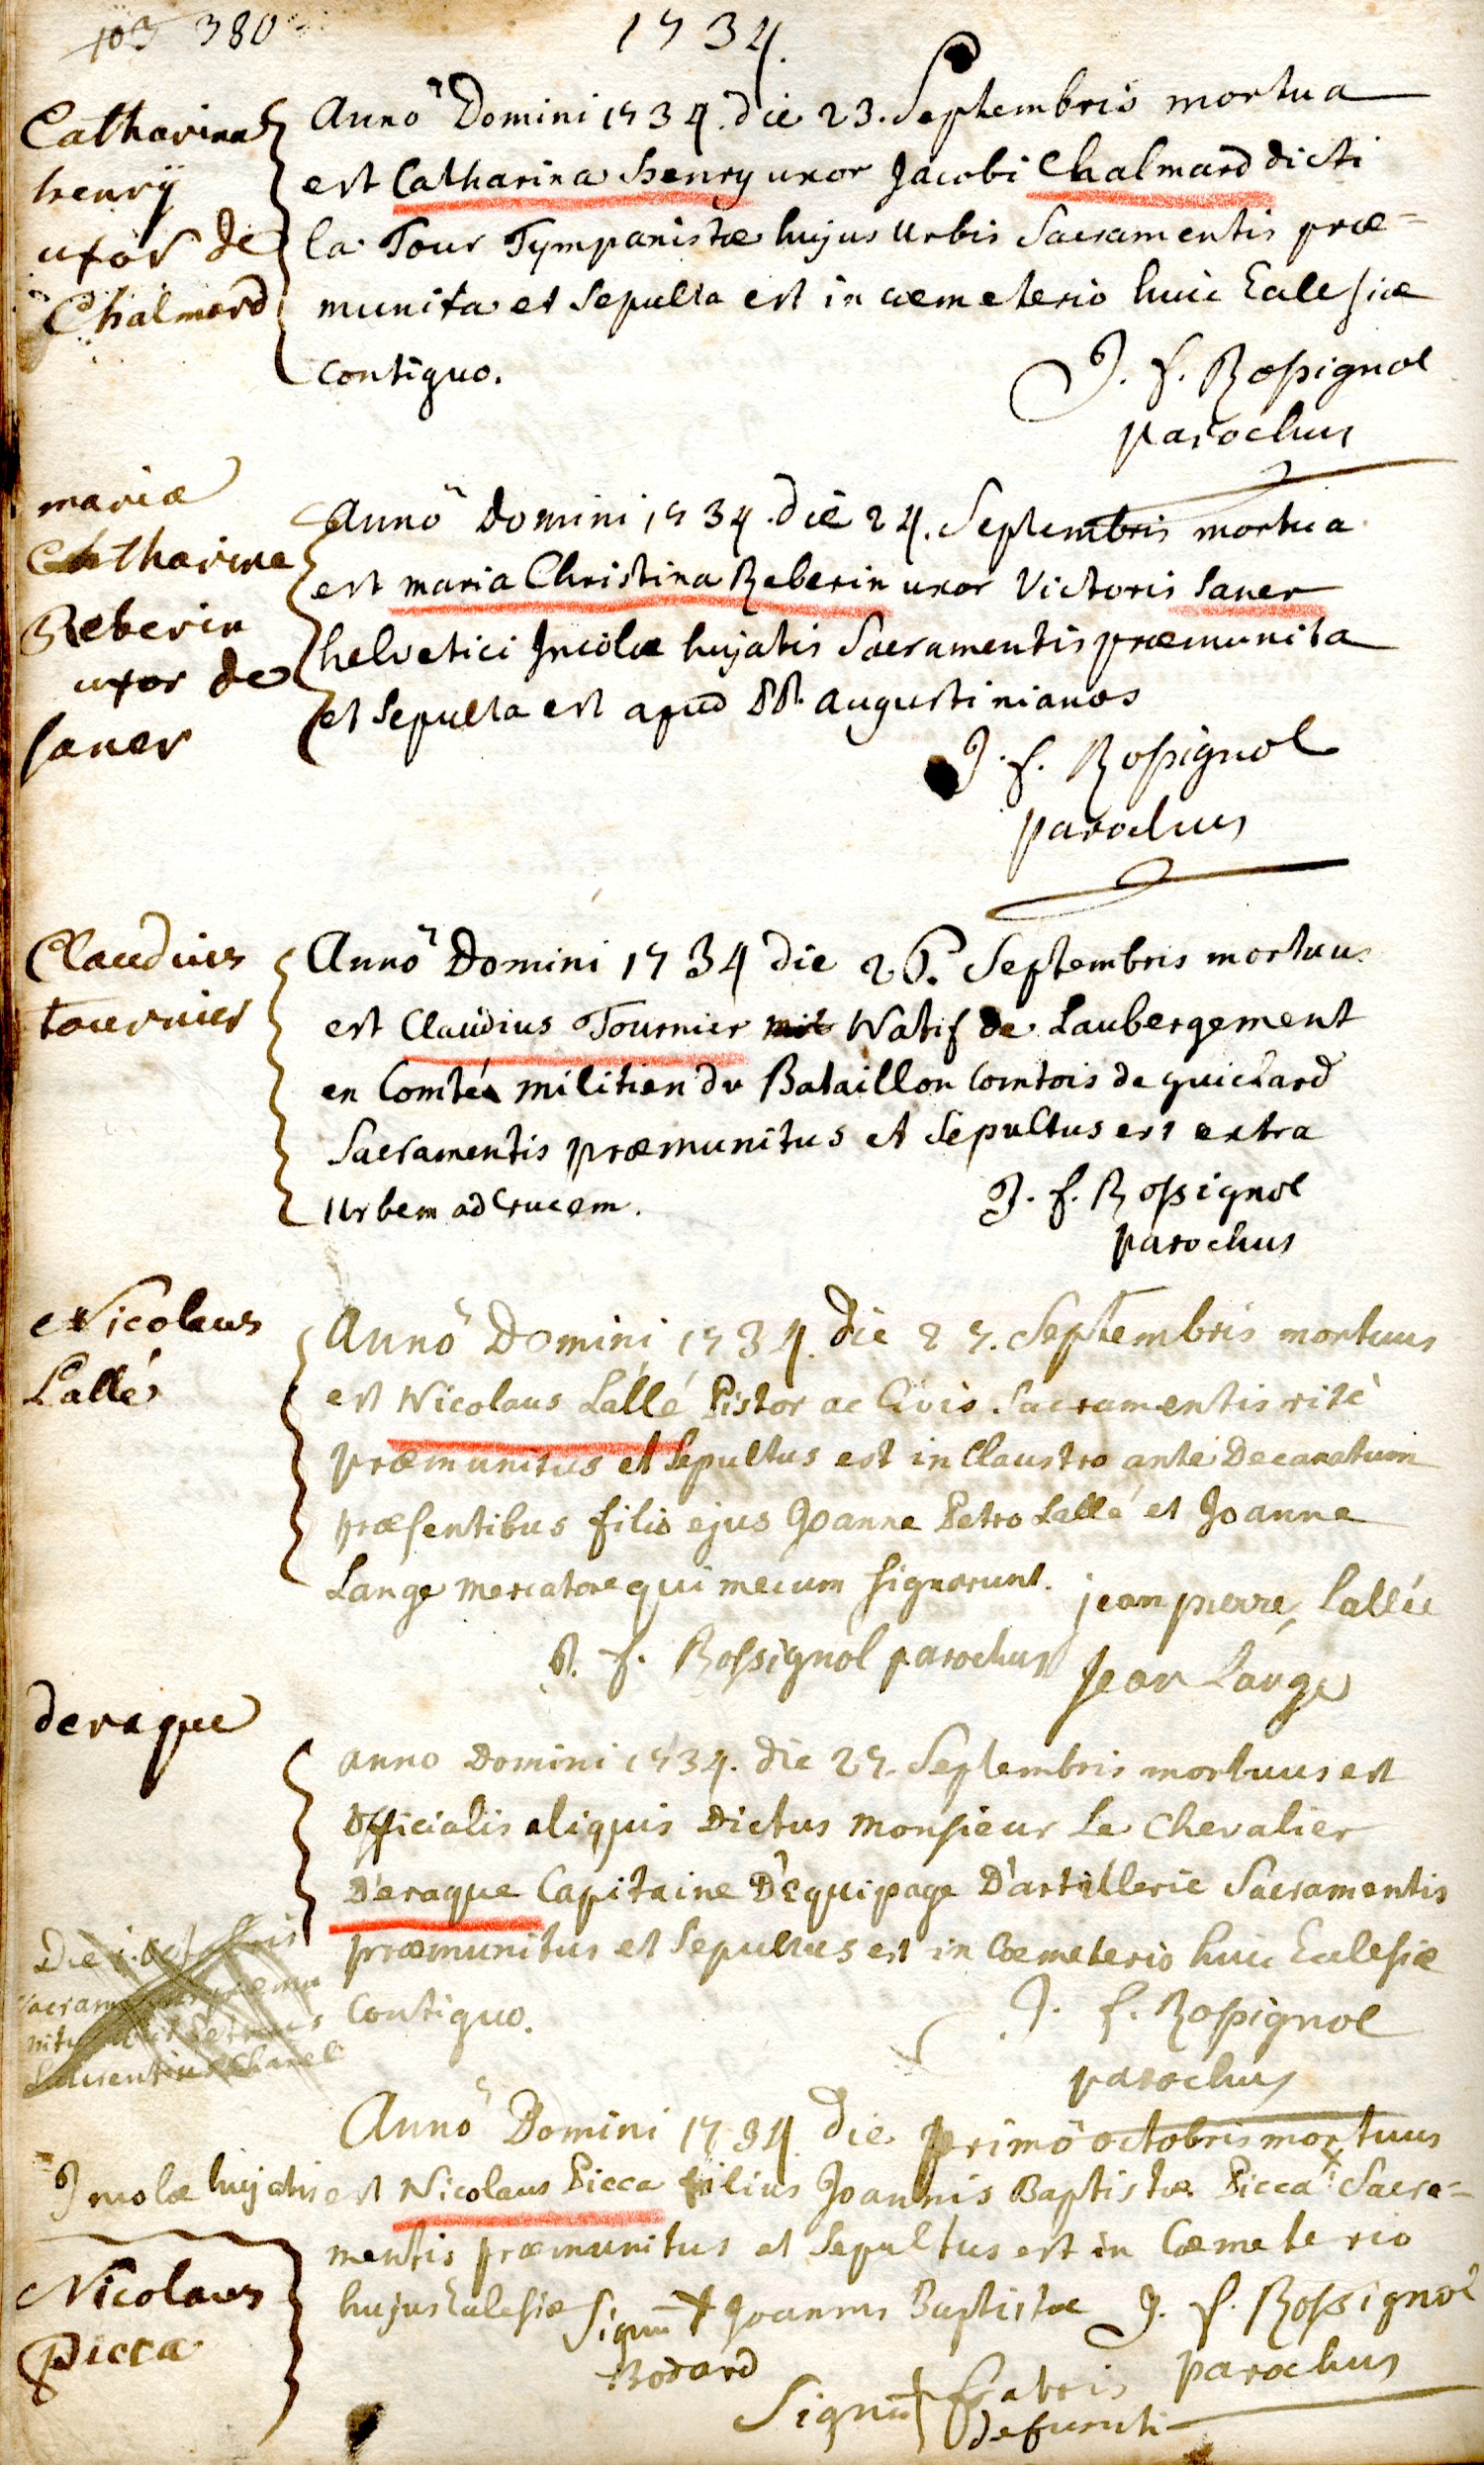 103 380
1734.
Catharina
henrÿ
uxor de
Chalmard
Anno Domini 1734. die 23. Septembris mortua
est Catharina henry uxor Jacobi Chalmard dicti
la Tour Tympanistæ hujus Urbis Sacramentis præ=
munita et Sepulta est in cœmeterio huic Ecclesiæ
contiguo.
J. f. Rossignol
parochus
maria
Catharina
Reberin
uxor de
saner
Anno Domini 1734. die 24. Septembris mortua
est maria Christina Reberin uxor Victoris saner
helvetici Incolæ hujatis Sacramentis præmunita
et Sepulta est apud PP. augustinianos
J. f. Rossignol
parochus
Claudius
tournier
Anno Domini 1734 die 26. Septembris mortuus
est Claudius Tournier Natif de Laubergement
en Comté militien du Bataillon Comtois de guichard
Sacramentis præmunitus et Sepultus est extra
Urbem ad Crucem.
J. f. Rossignol
parochus
Nicolaus
Lallé
Anno Domini 1734. die 27. Septembris mortuus
est Nicolaus Lallé Pistor ac Civis Sacramentis ritè
præmunitus et Sepultus est in Claustro ante Decanatum
præsentibus filio ejus Joanne Petro Lallé et Joanne
Lange mercatore qui mecum signarunt. jean pierre Lallée
J. f. Rossignol parochus Jean Lange
deraque
anno Domini 1734. die 27. Septembris mortuus est
Officialis aliquis Dictus Monsieur Le Chevalier
D'eraque Capitaine D'Equipage D'artillerie Sacramentis
præmunitus et Sepultus est in Cœmeterio huic Ecclesiæ
Contiguo.
J. f. Rossignol
parochus
Die 1. octobris
sacramentis præmu
nitus obiit Petrus
Laurentius
Anno Domini 1734. die primo octobris mortuus
est Nicolaus Picca filius Joannis Baptistæ Picca x Sacra=
mentis præmunitus et Sepultus est in Cœmeterio
hujus Ecclesiæ
Incolæ hujatis
Nicolaus
Picca
Signu + Joannis Baptistæ
Bodard
J. f. Rossignol
parochus
Signu + Patris
defuncti